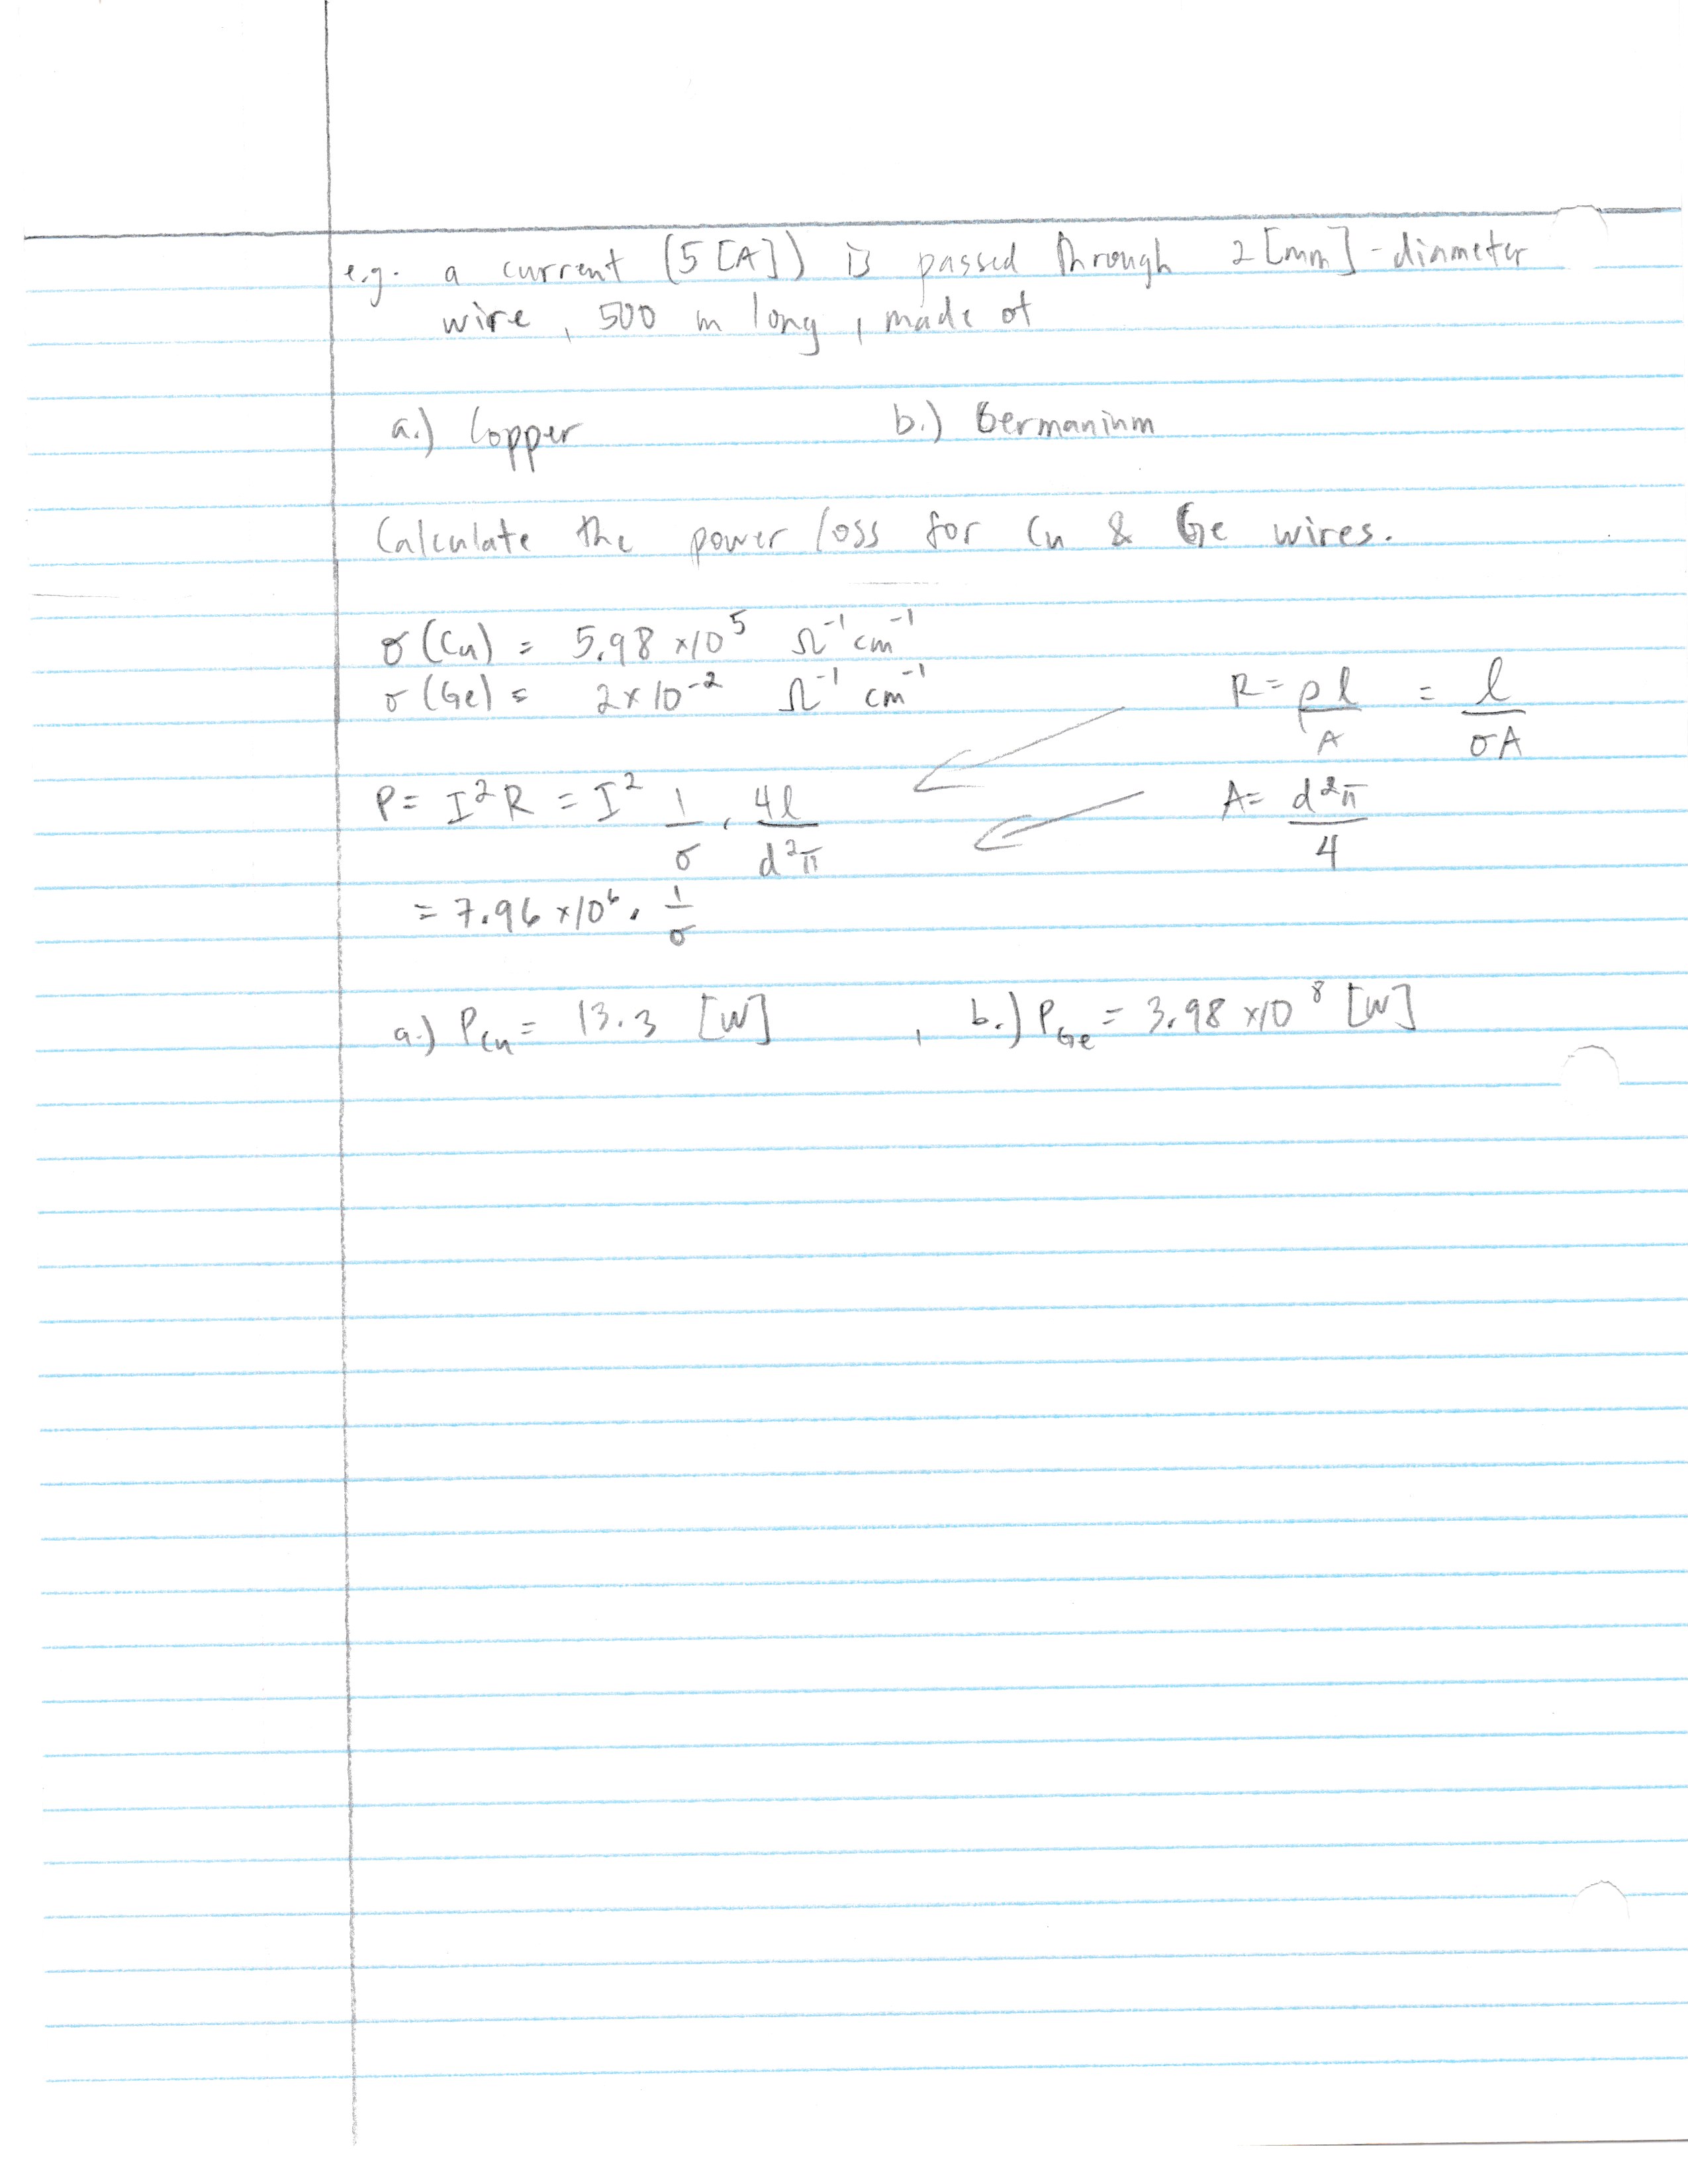 e.g. a current (5 [A]) is passed through 2 [mm]-diameter
wire, 500 m long, made of
a.) Copper b.) Germanium
Calculate the power loss for Cu & Ge wires.
σ(Cu) = 5.98 ×10⁵ Ω⁻¹ cm⁻¹
σ(Ge) = 2×10⁻² Ω⁻¹ cm⁻¹
R = ρl/A = l/σA
P = I²R = I² 1/σ · 4l/d²π
A = d²π/4
= 7.96 ×10⁶ · 1/σ
a.) P_Cu = 13.3 [W] , b.) P_Ge = 3.98 ×10⁸ [W]